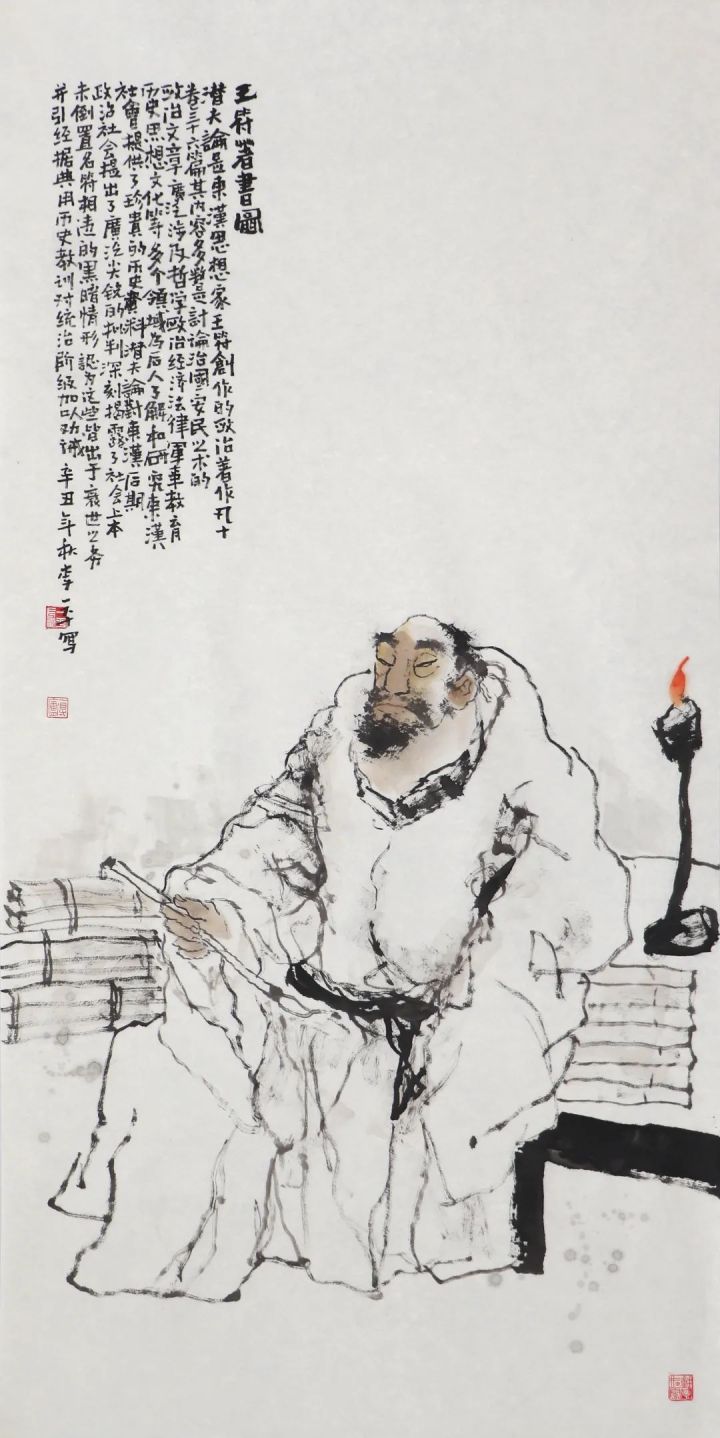 王符著書圖
潜夫論是東漢思想家王符創作的政治著作凡十
卷三十六篇其内容多数是討論治國安民之术的
政治文章廣泛涉及哲学政治经济法律軍事教育
历史思想文化等多个領域為后人了解和研究東漢
社會提供了珍貴的历史資料潜夫論對東漢后期
政治社会提出了廣泛尖锐的批判深刻揭露了社会上本
末倒置名符相违的黑暗情形認为这些皆出于衰世之务
并引经据典用历史教训对统治阶级加以劝诫 辛丑年秋李一 写